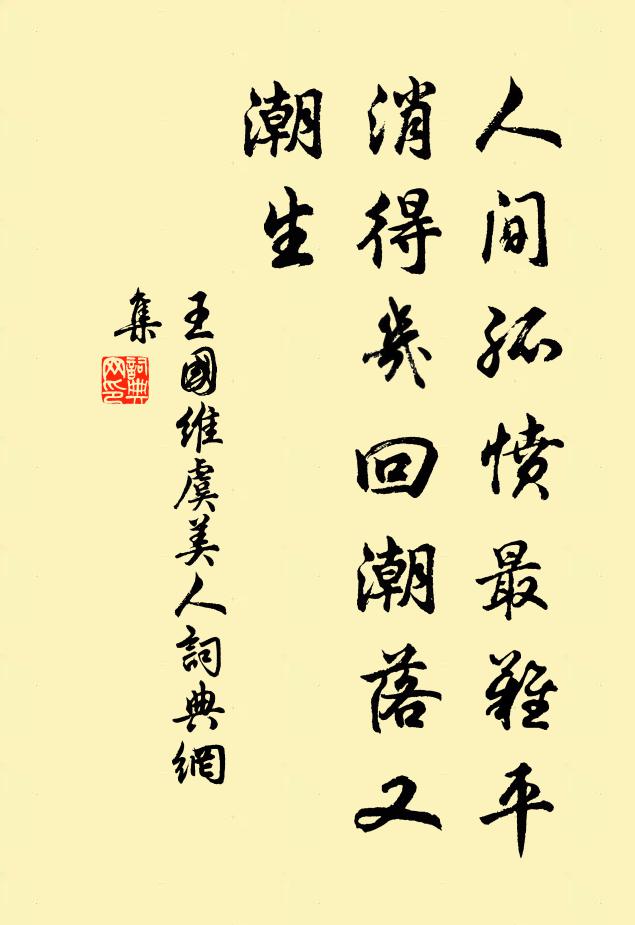 人间孤愤最难平
消得几回潮落又
潮生
王國维虞美人詞典網
集
詞典
网印